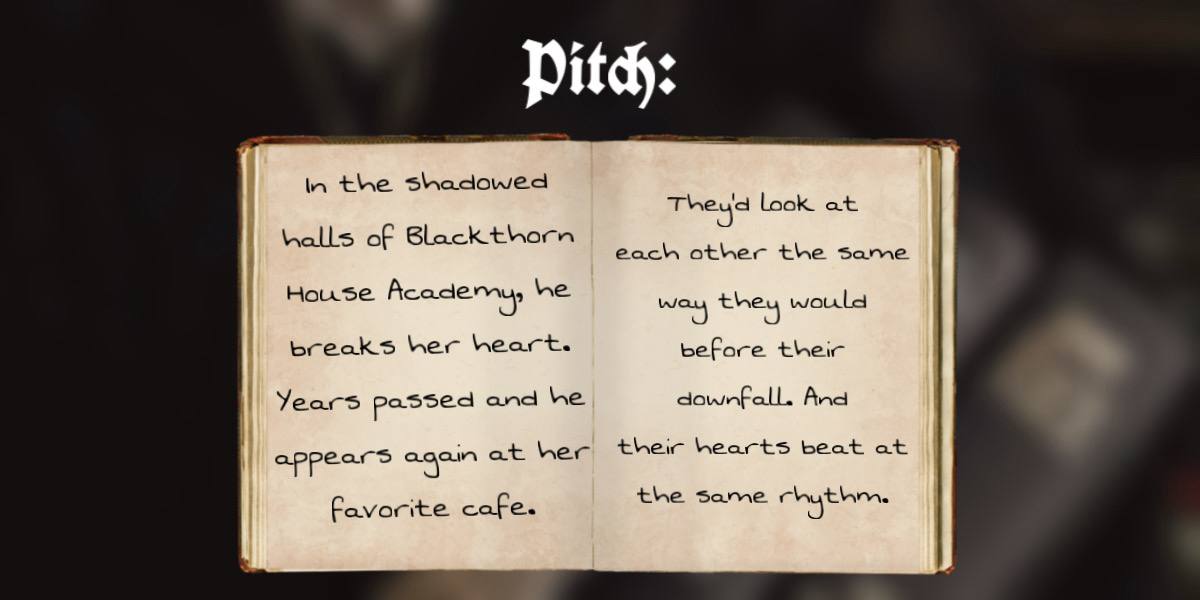 Pitch:
In the shadowed
halls of Blackthorn
House Academy, he
breaks her heart.
Years passed and he
appears again at her
favorite cafe.
They'd look at
each other the same
way they would
before their
downfall. And
their hearts beat at
the same rhythm.